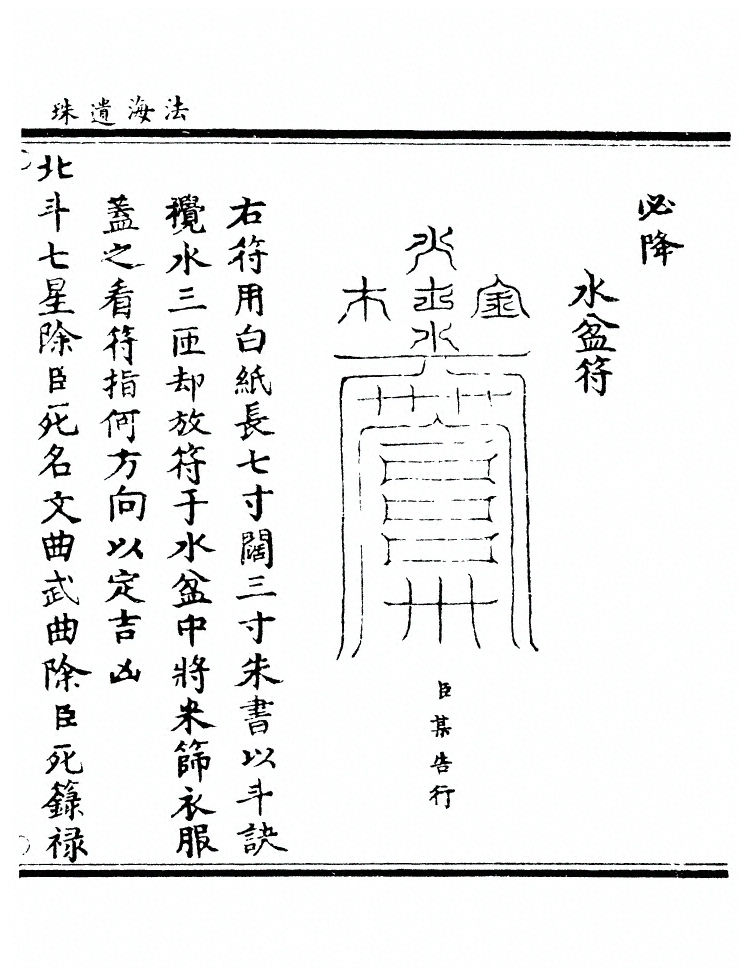 法海遺珠
必降
水盆符
火
金土木
水
臣某告行
右符用白紙長七寸闊三寸朱書以斗訣
攪水三匝却放符于水盆中將米篩衣服
蓋之看符指何方向以定吉凶
北斗七星除臣死名文曲武曲除臣死籙祿